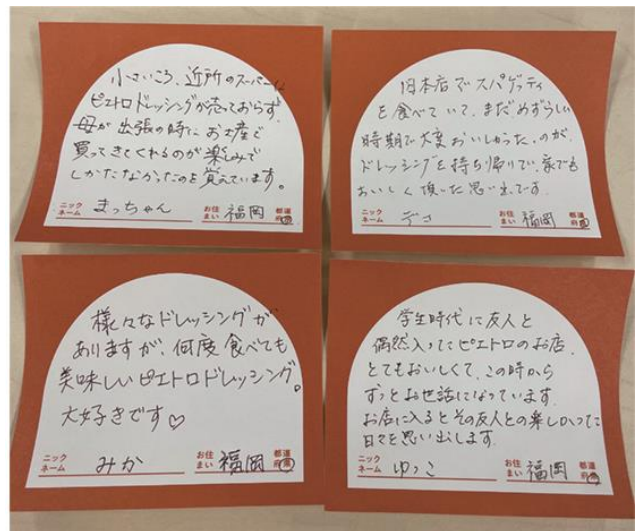 小さいころ、近所のスーパーに
ピエトロドレッシングが売っておらず、
母が出張の時に、お土産で
買ってきてくれるのが楽しみで
しかたなかったのを覚えています。
ニックネーム まっちゃん お住まい 福岡 都道府県
旧本店でスパゲッティ
を食べていて、まだめずらしい
時期で大変おいしかった。のが、
ドレッシングを持ち帰りで、家でも
おいしく頂いた思い出です。
ニックネーム デコ お住まい 福岡 都道府県
様々なドレッシングが
ありますが、何度食べても
美味しいピエトロドレッシング。
大好きです♡
ニックネーム みか お住まい 福岡 都道府県
学生時代に友人と
偶然入ったピエトロのお店。
とてもおいしくて、この時から
ずっとお世話になっています。
お店に入るとその友人との楽しかった
日々を思い出します。
ニックネーム ゆっこ お住まい 福岡 都道府県